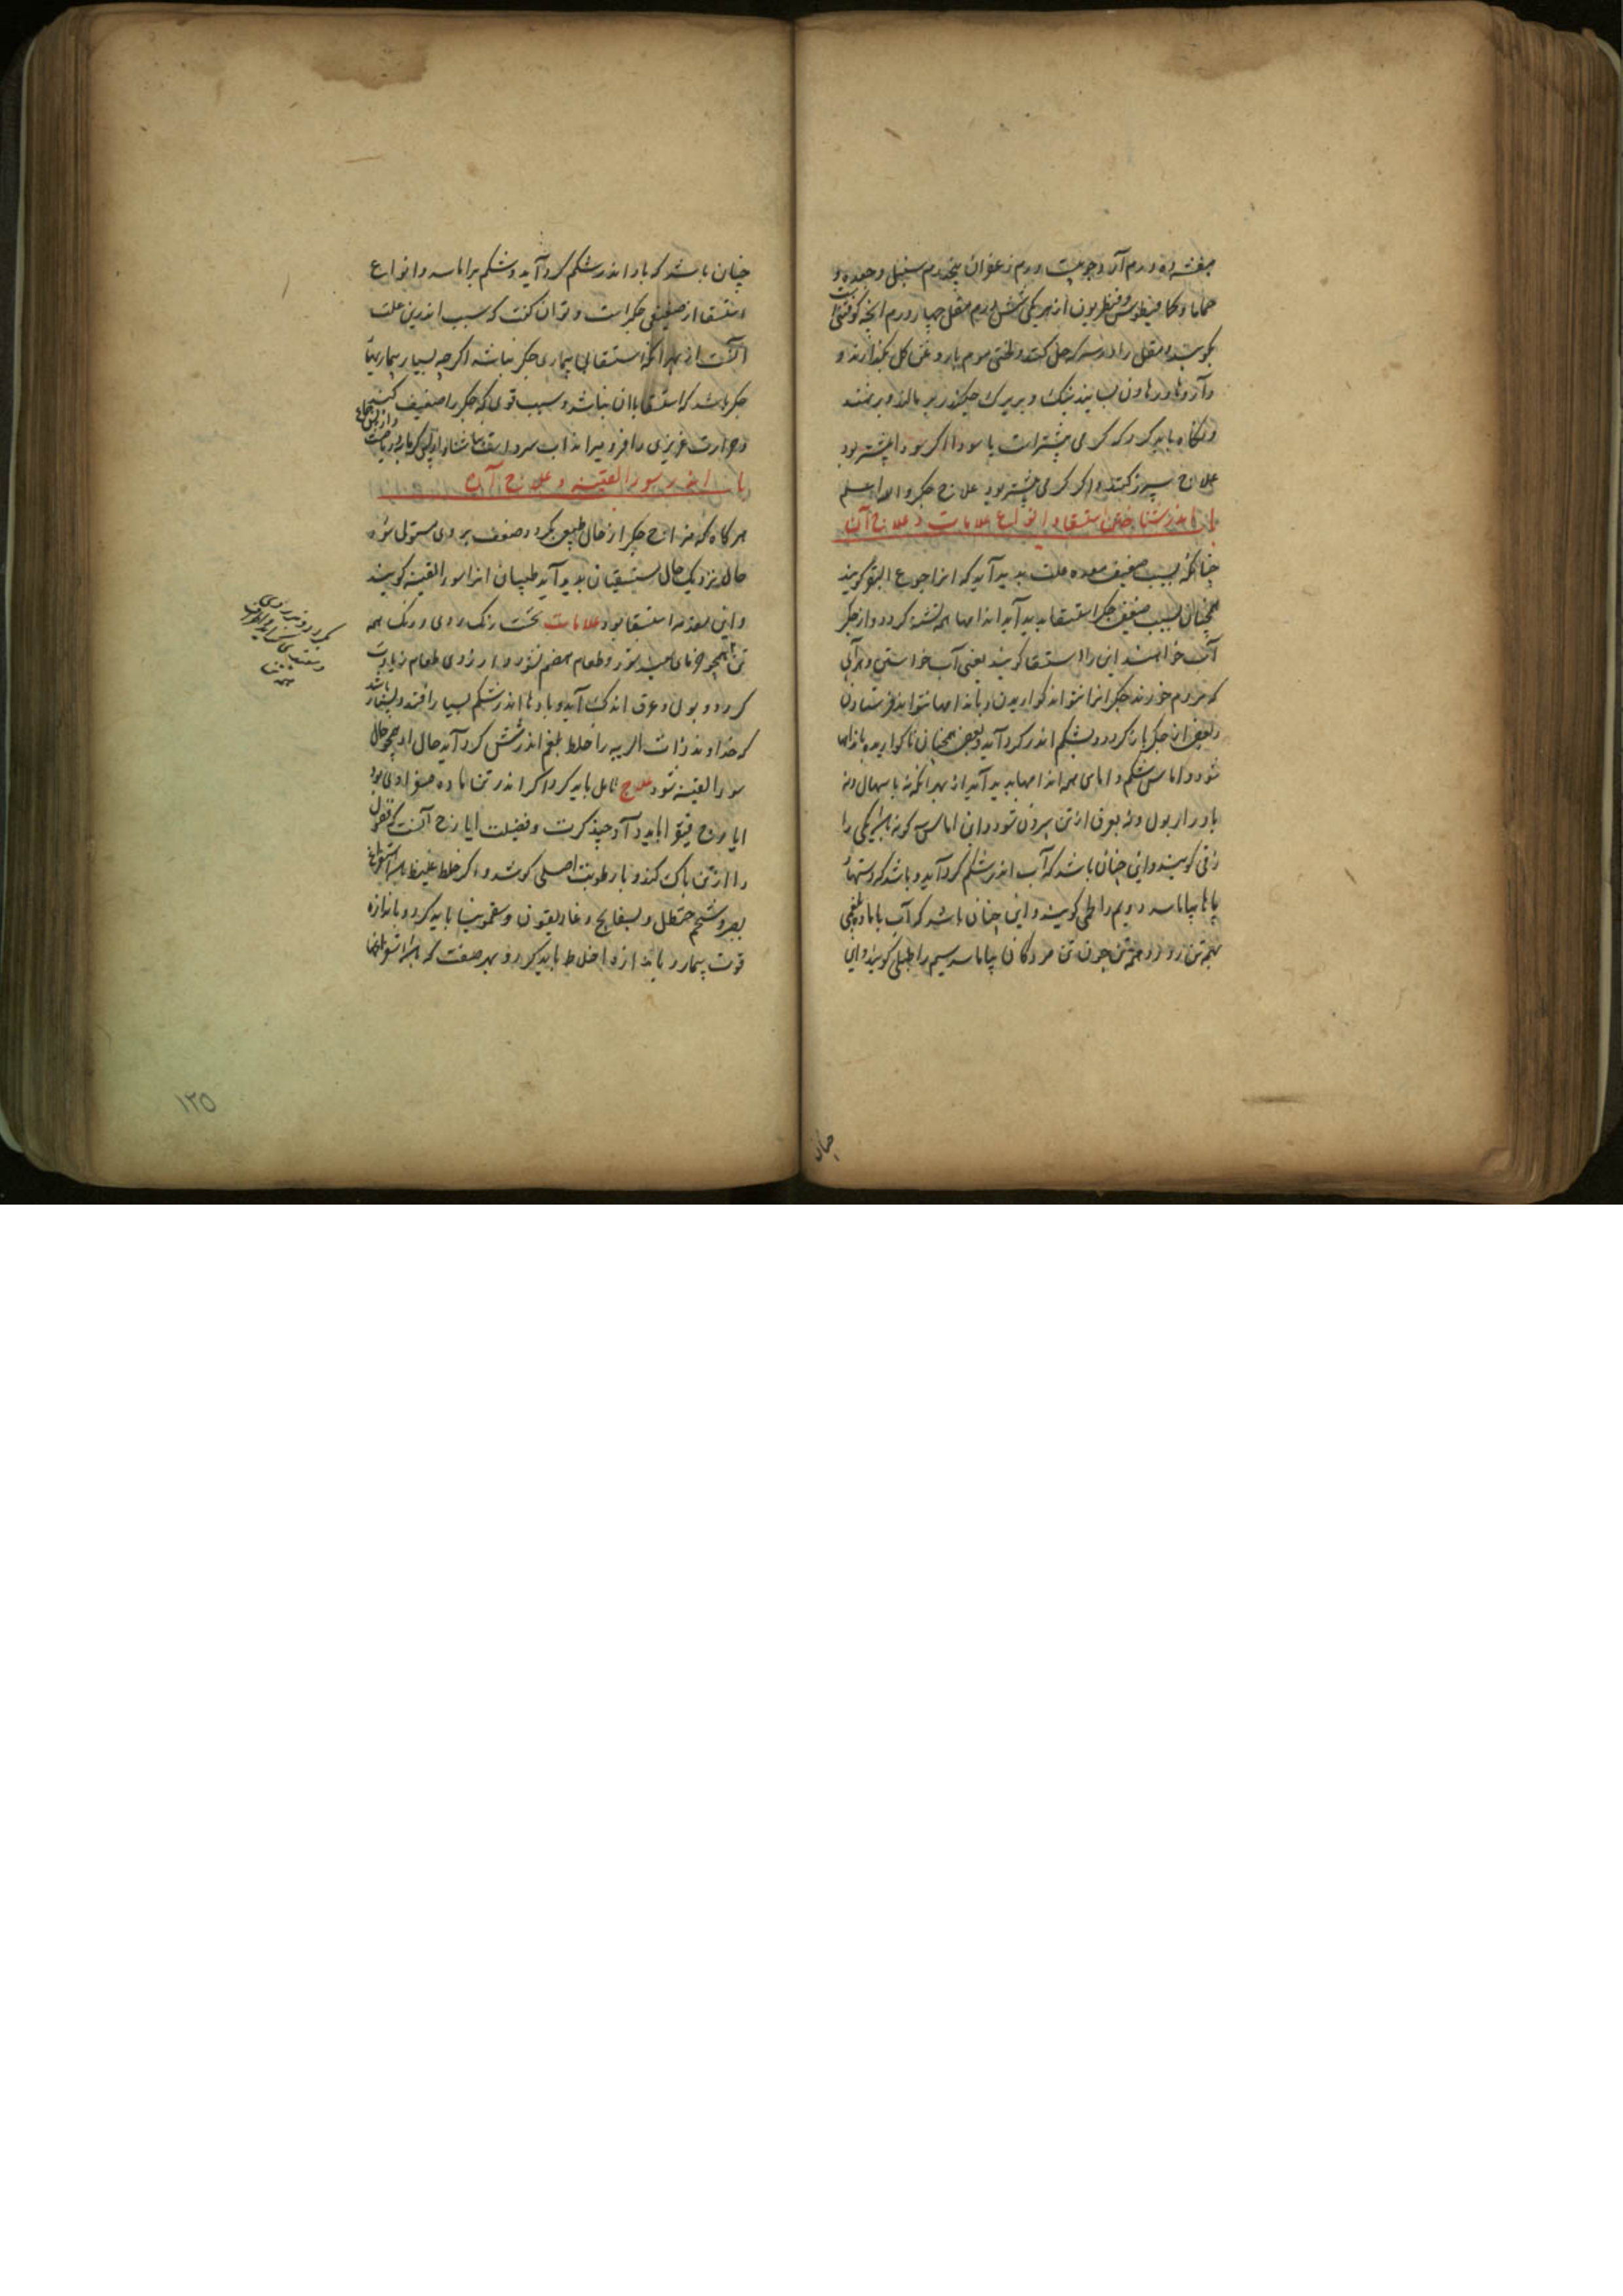 بنفشه ده درم آرد جو بیست درم زعفران پنج درم سنبل و جعده و
حماما و کمافیطوس و قنطریون از هر یکی شش درم مقل چهار درم آنچه کوفتنی است
بکوبند و مقل را در سرکه حل کنند و لختی موم با روغن گل بگذارند و
و داروها در هاون بسایند نیک و بر جگر و سپرز بر مالند و بر نهند
و نگاه باید کرد که گرمی بیشتر است یا سودا اگر سودا بیشتر بود
علاج سپرز کنند و اگر گرمی بیشتر بود علاج جگر والله اعلم
باب اندر شناختن استسقا و انواع علامات و علاج آن
چنانکه بسبب ضعیفی معده علت پدید آید که انرا جوع البقر گویند
همچنان بسبب ضعیفی جگر استسقا پدید آید اندامها همه تشنه گردد و از جگر
آب خواهند این را استسقا گویند یعنی آب خواستن و هر آبی
که مردم خورند جگر انرا نتواند گواریدن و باندامها نتواند فرستادن
و بعضی از جگر باز گردد و بشکم اندر گرد آید و بعضی همچنان ناگواریده باندامها
شود و اماس شکم و اماس همه اندامها پدید آید از بهر آنکه نه باسهال و نه
بادرار بول و نه بعرق از تن بیرون شود و این اماس سه گونه باشد یکی را
زقی گویند و این چنان باشد که آب اندر شکم گرد آید و باشد که دستها
پایها بیاماسد دویم را لحمی گویند و این چنان باشد که آب با ماده بلغمی
بهمه تن رود و همه تن چون تن مردگان بیاماسد سیم را طبلی گویند و این
چنان
چنان باشد که باد اندر شکم گرد آید و شکم براماسد و انواع
استسقا از ضعیفی جگر است و توان گفت که سبب اندرین علت
آنست از بهر آنکه استسقا بی بیماری جگر نباشد اگر چه بسیار بیماریهای
جگر باشد که استسقا با آن نباشد و سبب قوی که جگر را ضعیف کند
و حرارت غریزی را فرو میراند آب سرد است
باب اندر سوء القنیه و علاج آن
هر گاه که مزاج جگر از حال طبیعی بگردد و ضعف بر وی مستولی شود
حال نزدیک حال مستسقیان پدید آید طبیبان انرا سوء القنیه گویند
و این مقدمه استسقا بود علامات نخست رنگ روی و رنگ همه
تن همچو خزمای سپید شود و طعام هضم نشود و آرزوی طعام زیادت
گردد و بول و عرق اندک آید و بادها اندر شکم بسیار افتد و بسیار باشد
که خداوند ذات الریه را خلط بلغم اندر شش گرد آید حال او همچو حال
سوء القنیه شود علاج تامل باید کرد اگر اندر تن ماده صفراوی بود
ایارج فیقرا باید داد چند کرت و فضیلت ایارج آنست که فضول
را از تن پاک کند و با رطوبت اصلی نکوشد و اگر خلط غلیظ باشد استفراغ
بصبر و شحم حنظل و بسفایج و غاریقون و سقمونیا باید کرد و باندازه
قوت بیمار و باندازه اخلاط باید کرد و بهر صفت که باشد استفراغها
۱۲۵